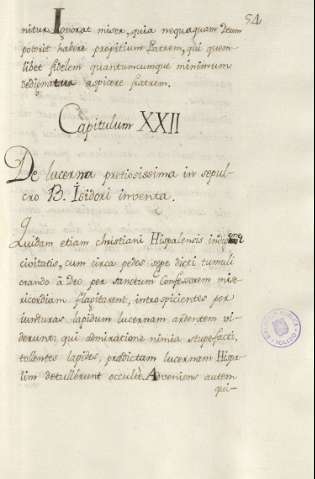 54
nitur Ignorat miser, quia nequaquam Deum
poterit habere propitium Patrem, qui quem-
libet fidelem quantumcumque minimum
dedignatur aspicere fratrem.
Capitulum XXII
De lucerna pretiosissima in sepul-
cro B. Isidori inventa.
Quidam etiam christiani Hispalensis
civitatis, cum circa pedes sepe dicti tumuli
orando à Deo per sanctum Confessorem mise-
ricordiam flagitarent, introspicientes per
iunituras lapidum lucernam ardentem vi-
derunt, qui admiratione nimia stupefacti,
tollentes lapides, prædictam lucernam Hispa-
lim detullerunt occulte. Adveniens autem
qui-